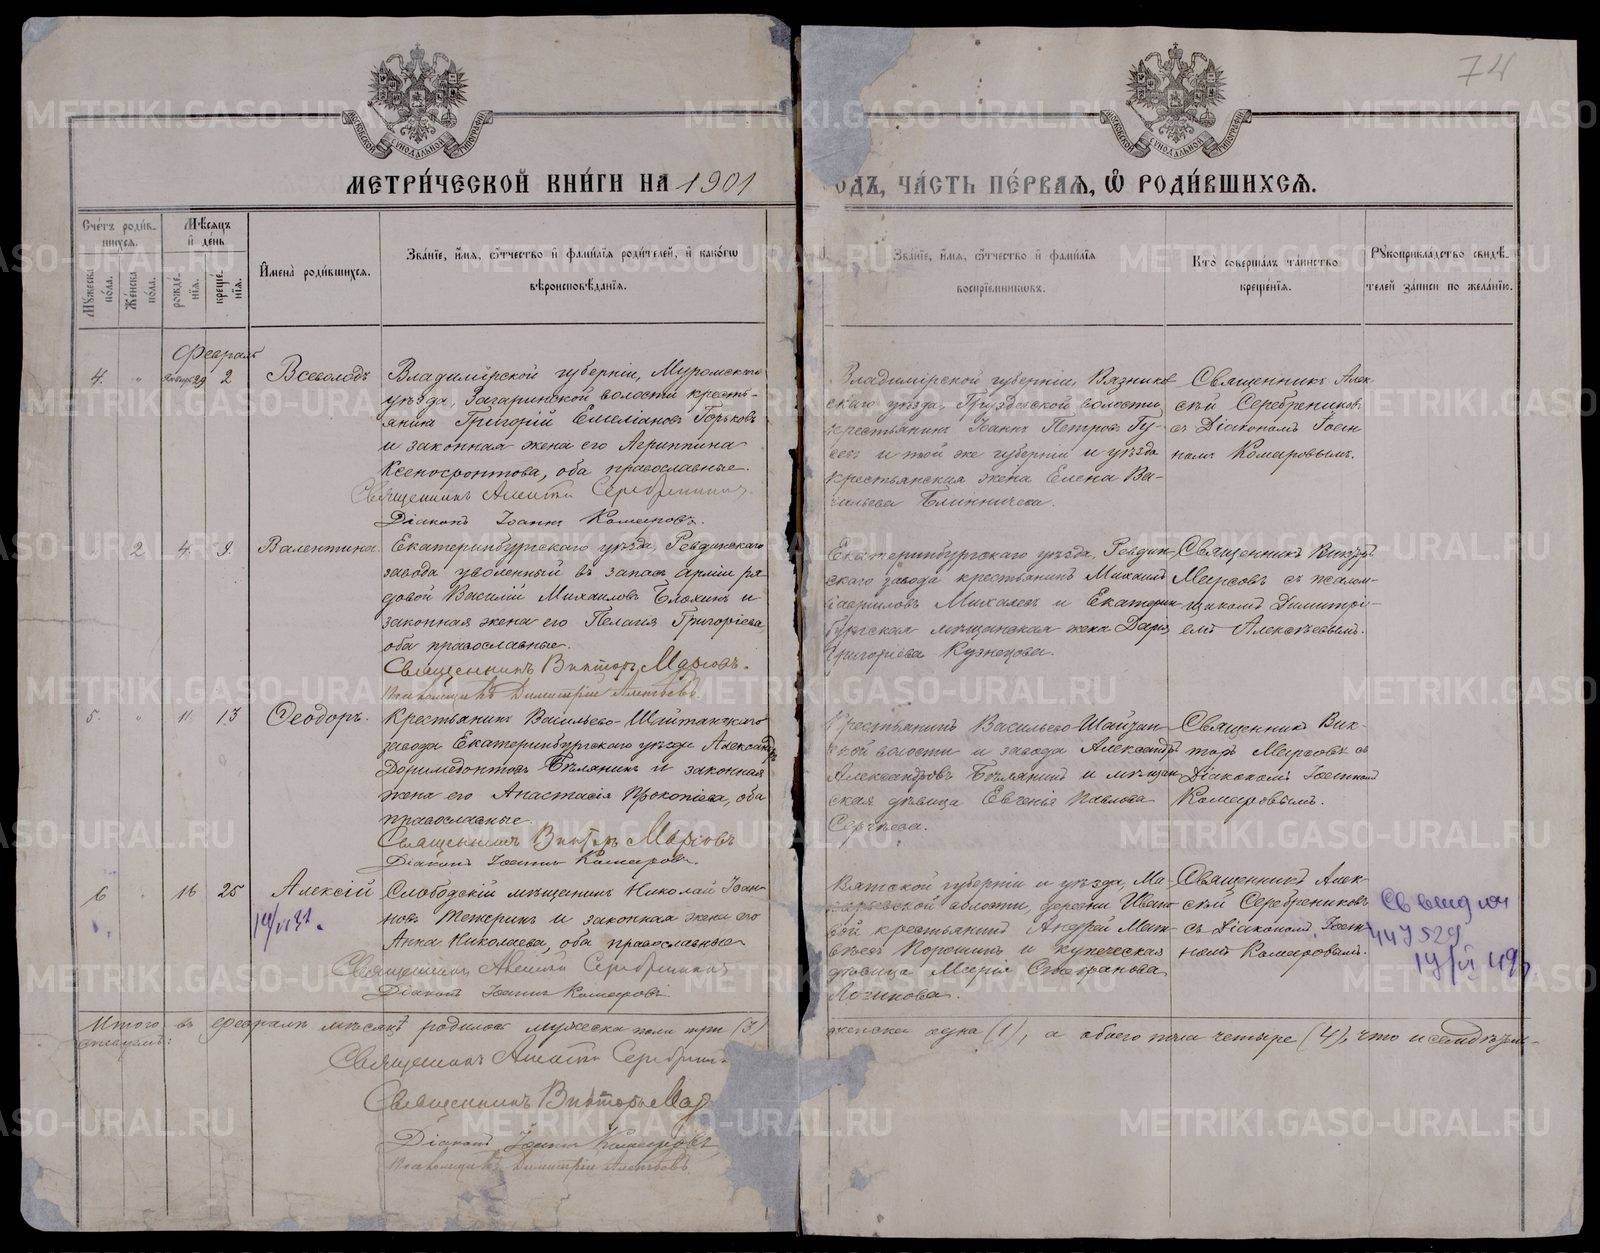 74
МОСКОВСКОЙ СѴНОДАЛЬНОЙ ТИПОГРАФІИ
МОСКОВСКОЙ СѴНОДАЛЬНОЙ ТИПОГРАФІИ
МЕТРИ́ЧЕСКОЙ КНИ́ГИ НА 1901
ОДЪ, ЧА́СТЬ ПЕ́РВАЯ, Ѡ РОДИ́ВШИХСЯ.
Сче́тъ роди́вшихся.
Мꙋжеска по́ла.
Же́нска по́ла.
Мѣ́сяцъ и́ де́нь
рожде́нїя.
креще́нїя.
И́мена̀ роди́вшихся.
Зва́нїе, и́мя, ѻ́тчество и́ фамѝлїя роди́телей, и́ како́гѡ
вѣроисповѣ́данїя.
Зва́нїе, и́мя, ѻ́тчество и́ фамѝлїя
воспрїе́мниковъ.
Кто̀ соверша́лъ та́инство
креще́нїя.
Рꙋкоприкла́дство свидѣ́телей за́писи по жела́нїю.
Февраль
4. " Января 29 2 Всеволодъ
Владимірской губерніи, Муромскаго
уѣзда, Загаринской волости кресть-
янинъ Григорій Емеліановъ Горьковъ
и законная жена его Агриппина
Ксенофонтова, оба православные.
Священникъ Алексій Серебренниковъ.
Діаконъ Іоаннъ Комаровъ.
Владимірской губерніи, Вязников
скаго уѣзда, Груздевской волости
крестьянинъ Іоаннъ Петровъ Гу-
севъ и той же губерніи и уѣзда
крестьянская жена Елена Ва-
сильева Блинничева.
Священникъ Алек-
сѣй Серебрениковъ
съ Діакономъ Іоан
номъ Комаровымъ.
2 4. 9. Валентина.
Екатеринбургскаго уѣзда, Ревдинскаго
завода уволенный въ запасъ арміи ря-
довой Василій Михаиловъ Блохинъ и
законная жена его Пелагія Григоріева,
оба православные.
Священникъ Викторъ Мирсовъ.
Псаломщикъ Димитрій Алексѣевъ.
Екатеринбургскаго уѣзда, Ревдин-
скаго завода крестьянинъ Михаилъ
Гавриловъ Михалевъ и Екатерин-
бургская мѣщанская жена Дарія
Григоріева Кузнецова.
Священникъ Викторъ
Мирсовъ съ псалом-
щикомъ Димитрі-
емъ Алексѣевымъ.
5. " 11 13 Ѳеодоръ.
Крестьянинъ Васильево-Шайтанскаго
завода Екатеринбургскаго уѣзда Александръ
Доримедонтовъ Бѣлянинъ и законная
жена его Анастасія Прокопіева, оба
православные.
Священникъ Викторъ Мирсовъ
Діаконъ Іоаннъ Комаровъ.
Крестьянинъ Васильево-Шайтан-
ской волости и завода Александръ
Александровъ Бѣлянинъ и мѣщан
ская дѣвица Евгенія Павлова
Сергѣева.
Священникъ Вик-
торъ Мирсовъ съ
Діакономъ Іоанномъ
Комаровымъ.
6 " 16 25 Алексій
Слободскій мѣщанинъ Николай Іоан-
новъ Тетеринъ и законная жена его
Анна Николаева, оба православные
Священникъ Алексій Серебренниковъ
Діаконъ Іоаннъ Комаровъ.
Вятской губерніи и уѣзда, Ма-
карьевской волости, деревни
крестьянинъ Андрей Мат-
вѣевъ Порошинъ и купеческая
дѣвица Марія Стефанова
Логинова.
Священникъ Алек
сѣй Серебрениковъ
съ Діакономъ Іоан-
номъ Комаровымъ.
447529
Итого въ февралѣ мѣсяцѣ родилось мужеска пола три (3)
женска одна (1), а обоего пола четыре (4), что и
Священникъ Алексій
Священникъ Викторъ
Діаконъ Іоаннъ Комаровъ
Псаломщикъ Димитрій Алексѣевъ.
METRIKI.GASO-URAL.RU